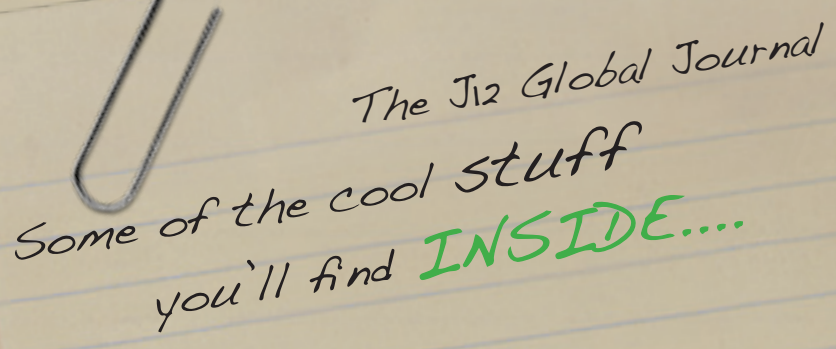 The J12 Global Journal
Some of the cool stuff
you'll find INSIDE....